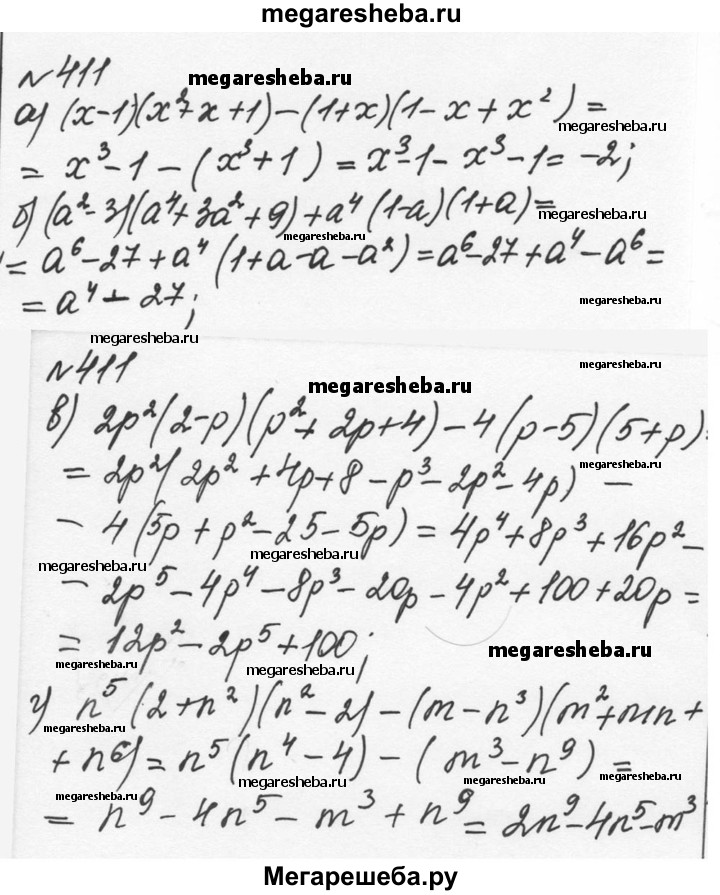 megaresheba.ru
№411
megaresheba.ru
а) (x-1)(x²+x+1)-(1+x)(1-x+x²)=
megaresheba.ru
= x³-1-(x³+1)=x³-1-x³-1=-2;
б) (a²-3)(a⁴+3a²+9)+a⁴(1-a)(1+a)=
megaresheba.ru
= a⁶-27+a⁴(1+a-a-a²)=a⁶-27+a⁴-a⁶=
= a⁴-27;
megaresheba.ru
megaresheba.ru
№411
megaresheba.ru
megaresheba.ru
в) 2p²(2-p)(p²+2p+4)-4(p-5)(5+p)=
= 2p²(2p²+4p+8-p³-2p²-4p) -
megaresheba.ru
- 4(5p+p²-25-5p)=4p⁴+8p³+16p²-
megaresheba.ru
megaresheba.ru
- 2p⁵-4p⁴-8p³-20p-4p²+100+20p=
= 12p²-2p⁵+100;
megaresheba.ru
megaresheba.ru
megaresheba.ru
г) n⁵(2+n²)(n²-2)-(m-n³)(m²+mn+
+n⁶)=n⁵(n⁴-4)-(m³-n⁹)=
megaresheba.ru
megaresheba.ru
megaresheba.ru
= n⁹-4n⁵-m³+n⁹=2n⁹-4n⁵-m³
megaresheba.ru
megaresheba.ru
Мегарешеба.ру